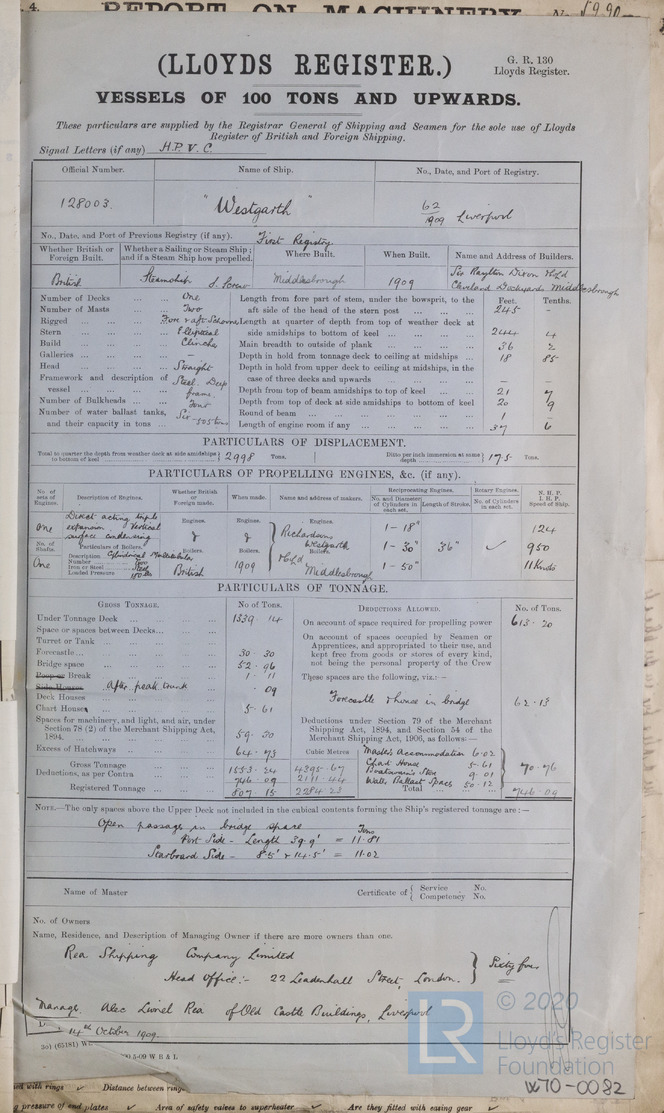 4. REPORT ON MACHINERY No. 5990
(LLOYDS REGISTER.)
G. R. 130
Lloyds Register.
VESSELS OF 100 TONS AND UPWARDS.
These particulars are supplied by the Registrar General of Shipping and Seamen for the sole use of Lloyds
Register of British and Foreign Shipping.
Signal Letters (if any) H.P.V.C.
Official Number. Name of Ship. No., Date, and Port of Registry.
128003. "Westgarth" 62/1909 Liverpool
No., Date, and Port of Previous Registry (if any). First Registry
Whether British or Foreign Built. Whether a Sailing or Steam Ship; and if a Steam Ship how propelled. Where Built. When Built. Name and Address of Builders.
British Steamship S. Screw Middlesbrough 1909 Sir Raylton Dixon & Co Ld Cleveland Dockyards Middlesbrough
Number of Decks One Length from fore part of stem, under the bowsprit, to the Feet. Tenths.
Number of Masts Two aft side of the head of the stern post 245 -
Rigged Fore & aft Schooner Length at quarter of depth from top of weather deck at
Stern Elliptical side amidships to bottom of keel 244 4
Build Clincher Main breadth to outside of plank 36 2
Galleries - Depth in hold from tonnage deck to ceiling at midships 18 85
Head Straight Depth in hold from upper deck to ceiling at midships, in the
Framework and description of vessel Steel Deep frame case of three decks and upwards - -
Depth from top of beam amidships to top of keel 21 7
Number of Bulkheads Four Depth from top of deck at side amidships to bottom of keel 20 9
Number of water ballast tanks, Round of beam 1 -
and their capacity in tons Six 505 tons Length of engine room if any 37 6
PARTICULARS OF DISPLACEMENT.
Total to quarter the depth from weather deck at side amidships to bottom of keel 2998 Tons. Ditto per inch immersion at same depth 17.5 Tons.
PARTICULARS OF PROPELLING ENGINES, &c. (if any).
No. of sets of Engines. Description of Engines. Whether British or Foreign made. When made. Name and address of makers. Reciprocating Engines. No. and Diameter of Cylinders in each set. Length of Stroke. Rotary Engines. No. of Cylinders in each set. N. H. P. I. H. P. Speed of Ship.
One Direct acting triple expansion Vertical surface condensing Engines. Engines. Engines. 1-18" 124
No. of Shafts. Particulars of Boilers. Boilers. Boilers. Richardsons Westgarth & Co Ld Boilers 1-30" 36" ✓ 950
One Description Cylindrical Multitubular
Number Two
Iron or Steel Steel
Loaded Pressure 180 lbs British 1909 Middlesbrough 1-50" 11 Knots
PARTICULARS OF TONNAGE.
GROSS TONNAGE. No of Tons. DEDUCTIONS ALLOWED. No. of Tons.
Under Tonnage Deck 1339.14 On account of space required for propelling power 613.20
Space or spaces between Decks On account of spaces occupied by Seamen or
Turret or Tank Apprentices, and appropriated to their use, and
Forecastle 30.30 kept free from goods or stores of every kind,
Bridge space 52.96 not being the personal property of the Crew
Poop or Break 1.11 These spaces are the following, viz.:—
Side Houses After peak trunk .09
Deck Houses Forecastle & house in bridge 62.13
Chart House 5.61
Spaces for machinery, and light, and air, under Deductions under Section 79 of the Merchant
Section 78 (2) of the Merchant Shipping Act, Shipping Act, 1894, and Section 54 of the
1894. 59.30 Merchant Shipping Act, 1906, as follows:—
Excess of Hatchways 64.73 Cubic Metres Master's Accommodation 6.02
Gross Tonnage 1553.24 4395.67 Chart House 5.61
Deductions, as per Contra 746.09 2111.44 Boatswain's Store 9.01 70.76
Registered Tonnage 807.15 2284.23 Water Ballast Spaces 50.12
Total 746.09
NOTE.—The only spaces above the Upper Deck not included in the cubical contents forming the Ship's registered tonnage are:—
Open passages in bridge space Tons
Port Side - Length 39.9' = 11.81
Starboard Side - 8.5' & 14.5' = 11.02
Name of Master Certificate of { Service No.
Competency No.
No. of Owners
Name, Residence, and Description of Managing Owner if there are more owners than one.
Rea Shipping Company Limited
Head Office:- 22 Leadenhall Street, London. } Sixty four
Manager. Alec Lionel Rea of Old Castle Buildings, Liverpool
14th October 1909.
5-09 W B & L
LR © 2020
Lloyd's Register
Foundation
WTO-0082
with rings ✓ Distance between rings
pressure of end plates ✓ Area of safety valves to superheater ✓ Are they fitted with easing gear ✓